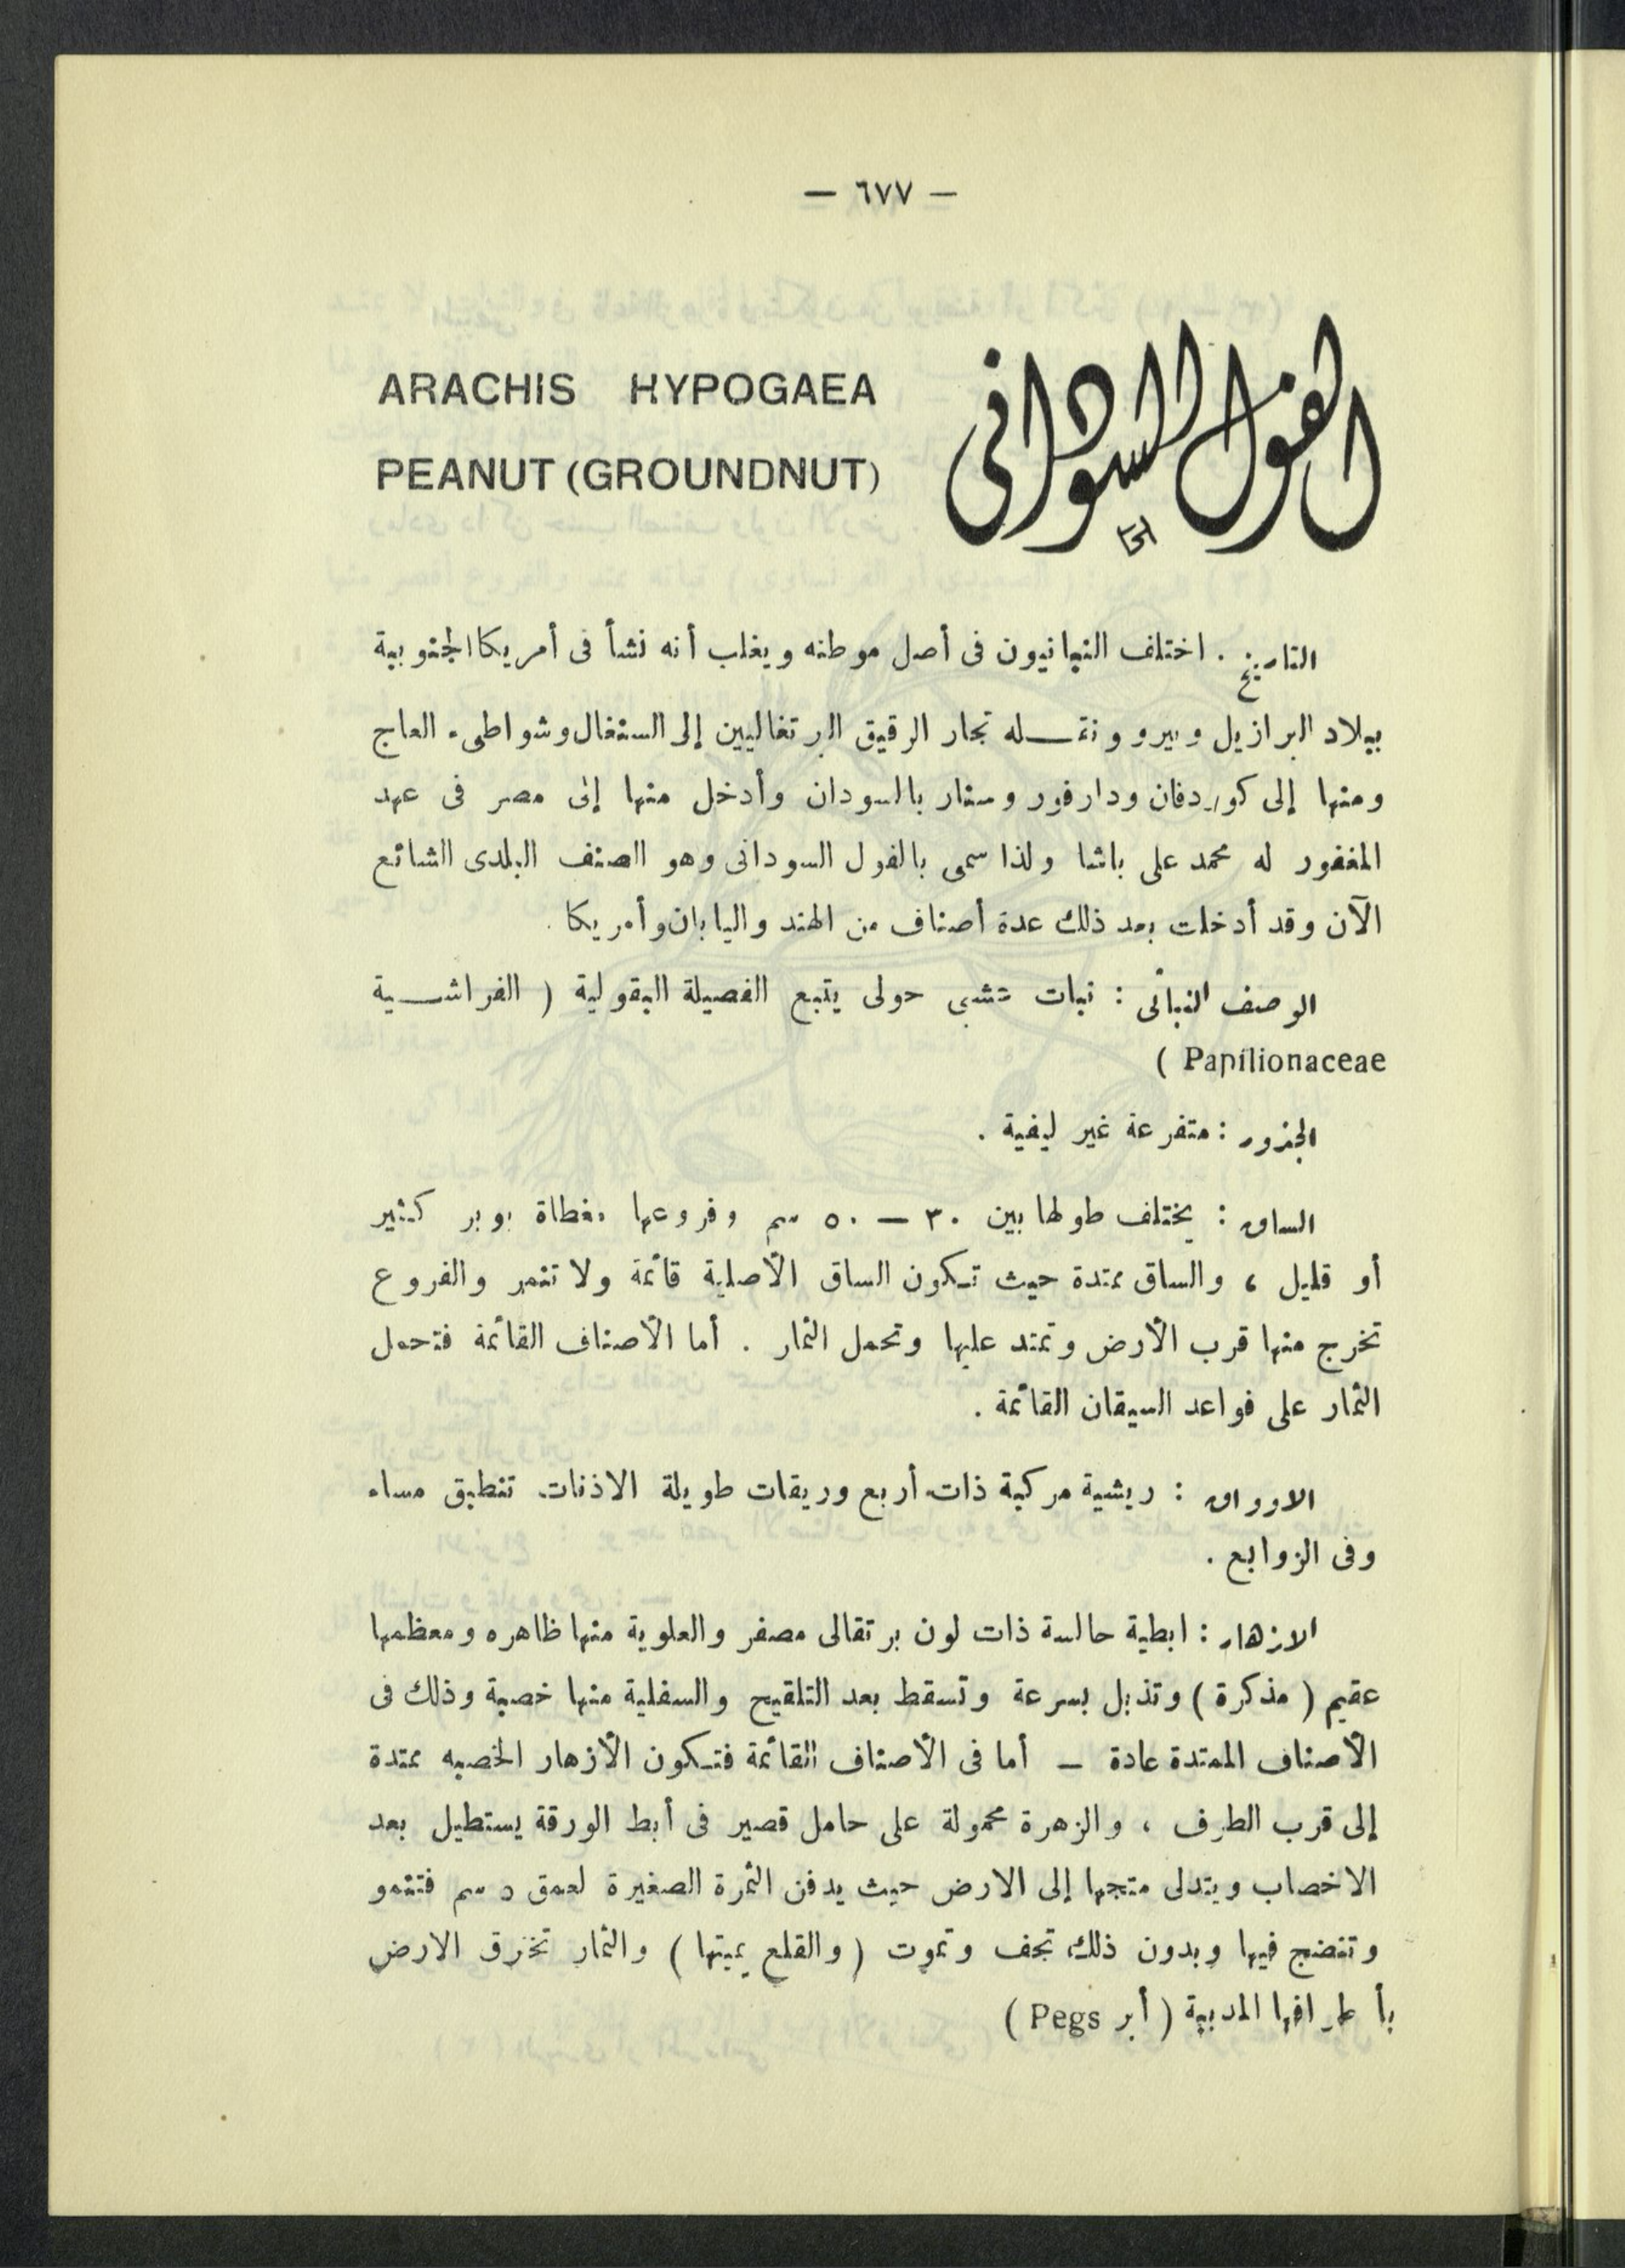 — ٦٧٧ —
الفول السودانى
ARACHIS HYPOGAEA
PEANUT (GROUNDNUT)
التاريخ . اختلف النباتيون فى أصل موطنه ويغلب أنه نشأ فى أمريكا الجنوبية
ببلاد البرازيل وبيرو ونقـــله تجار الرقيق البرتغاليين إلى السنغال وشواطىء العاج
ومنها إلى كوردفان ودارفور وسنار بالسودان وأدخل منها إلى مصر فى عهد
المغفور له محمد على باشا ولذا سمى بالفول السودانى وهو الصنف البلدى الشائع
الآن وقد أدخلت بعد ذلك عدة أصناف من الهند واليابان وأمريكا .
الوصف النباتى : نبات عشبى حولى يتبع الفصيلة البقولية ( الفراشــية
Papilionaceae )
الجذور : متفرعة غير ليفية .
الساق : يختلف طولها بين ٣٠ — ٥٠ سم وفروعها مغطاة بوبر كثير
أو قليل ، والساق ممتدة حيث تكون الساق الأصلية قائمة ولا تثمر والفروع
تخرج منها قرب الأرض وتمتد عليها وتحمل الثمار . أما الأصناف القائمة فتحمل
الثمار على قواعد السيقان القائمة .
الاوراق : ريشية مركبة ذات أربع وريقات طويلة الاذنات تنطبق مساء
وفى الزوابع .
الازهار : ابطية جالسة ذات لون برتقالى مصفر والعلوية منها ظاهره ومعظمها
عقيم ( مذكرة ) وتذبل بسرعة وتسقط بعد التلقيح والسفلية منها خصبة وذلك فى
الأصناف الممتدة عادة — أما فى الأصناف القائمة فتكون الأزهار الخصبه ممتدة
إلى قرب الطرف ، والزهرة محمولة على حامل قصير فى أبط الورقة يستطيل بعد
الاخصاب ويتدلى متجها إلى الارض حيث يدفن الثمرة الصغيرة لعمق ٥ سم فتنمو
وتنضج فيها وبدون ذلك تجف وتموت ( والقلع يميتها ) والثمار تخترق الارض
بأطرافها المدببة ( أبر Pegs )